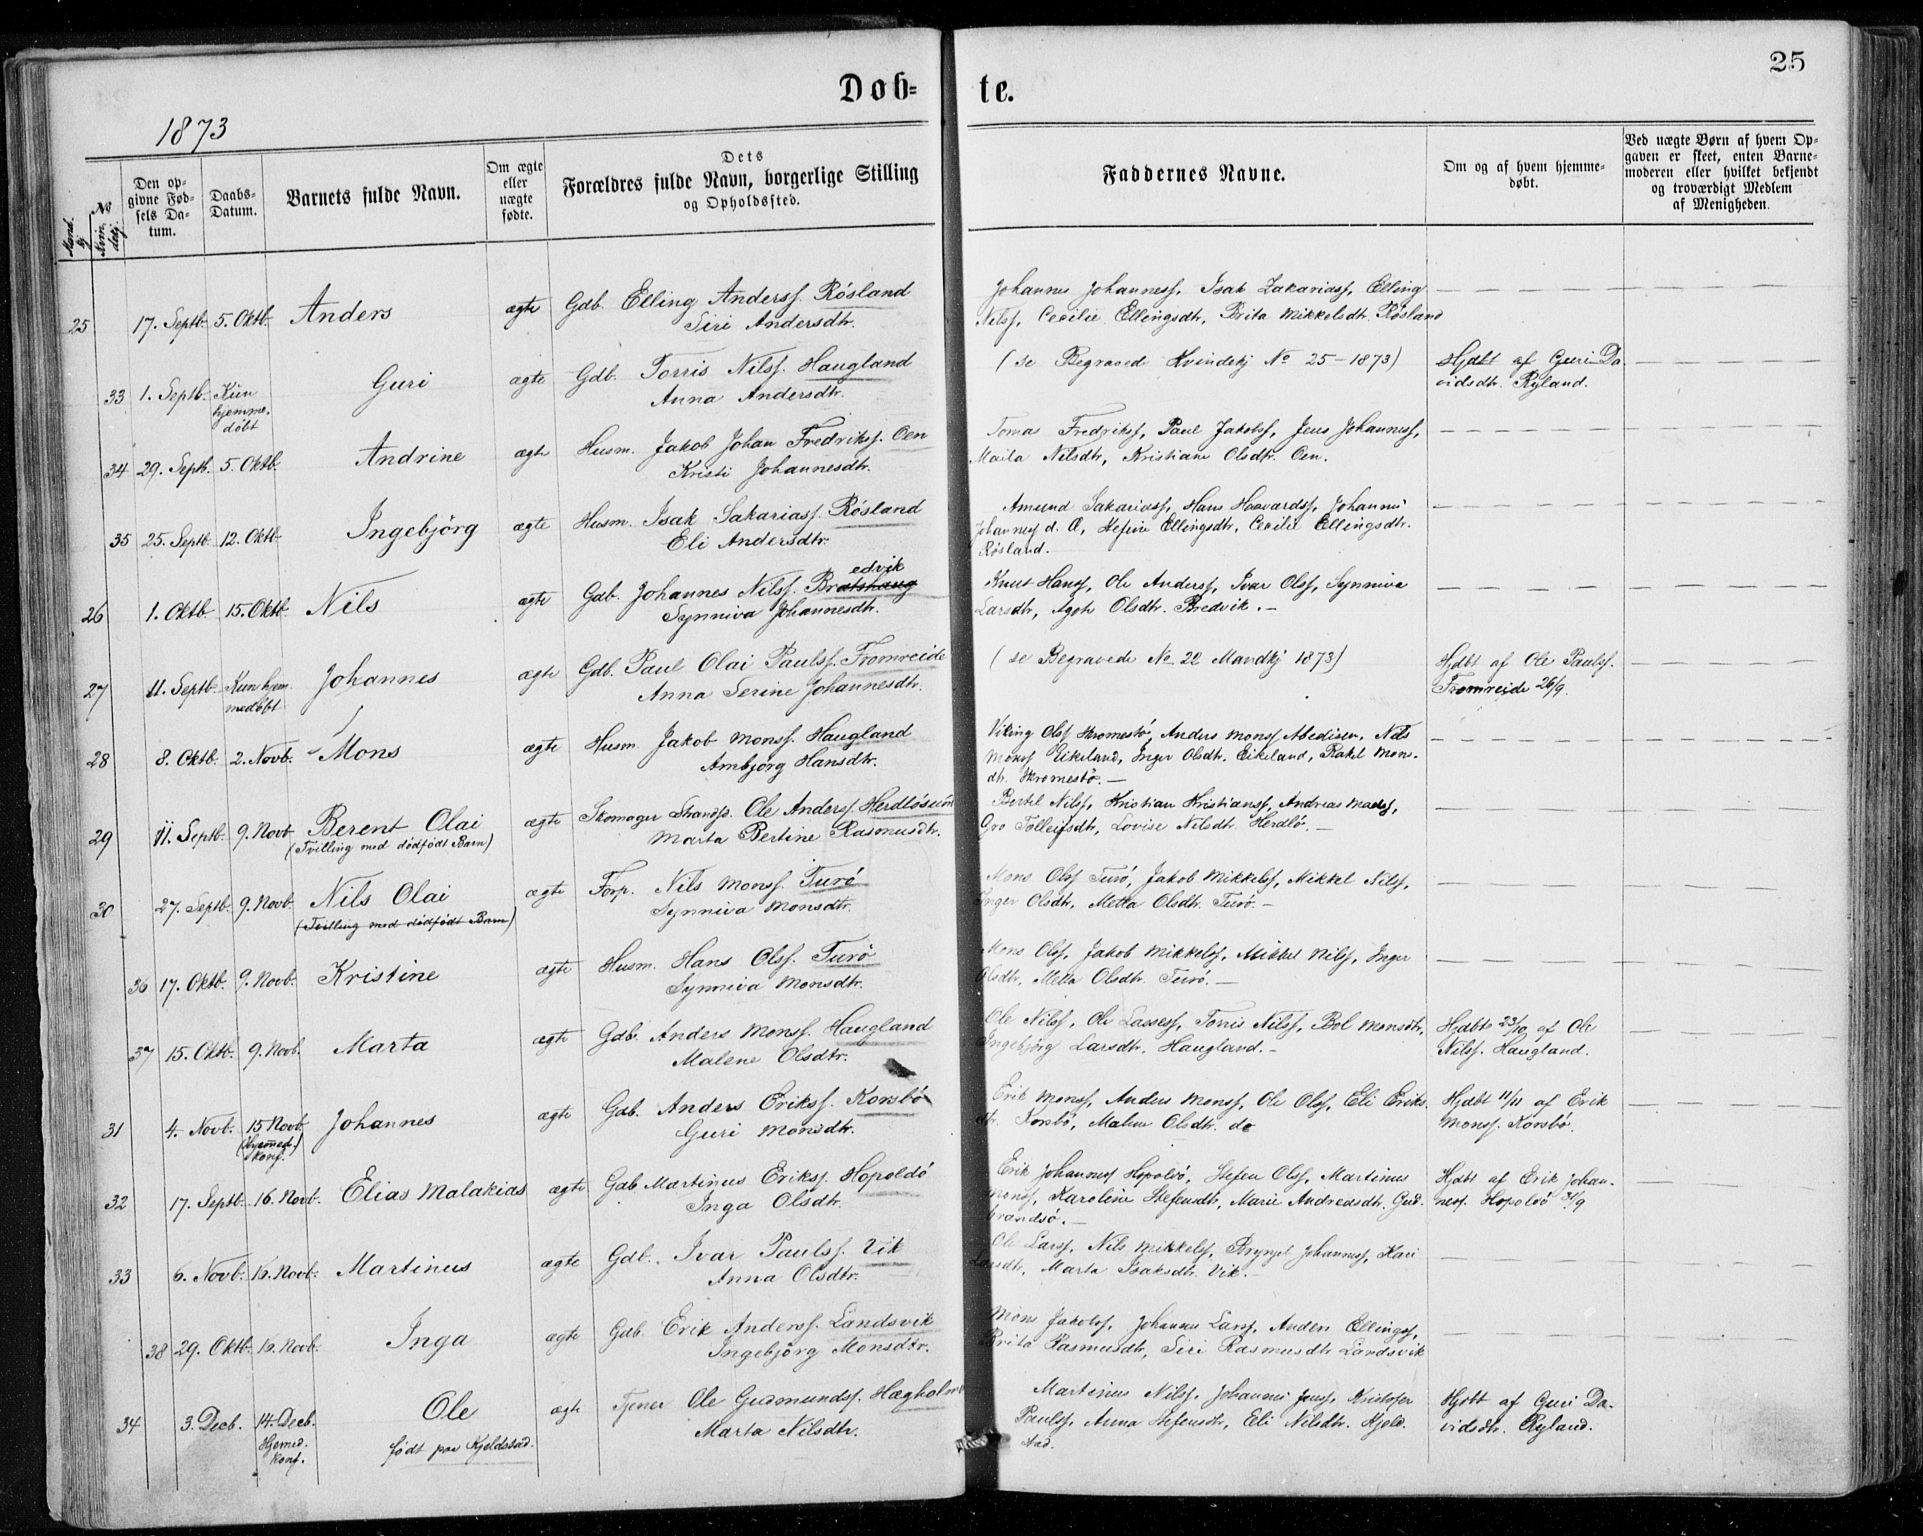 25
Døb=
te.
1873
Mandkj.
No Kvin.dekj.
Den op-
givne Fød-
sels Da-
tum.
Daabs-
Datum.
Barnets fulde Navn.
Om ægte
eller
uægte
fødte.
Dets
Forældres fulde Navn, borgerlige Stilling
og Opholdssted.
Faddernes Navne.
Om og af hvem hjemme-
døbt.
Ved uægte Børn af hvem Op-
gaven er skeet, enten Barne-
moderen eller hvilket bekjendt
og troværdigt Medlem
af Menigheden.
25 17. Septb. 5. Oktb. Anders ægte Gdb. Elling Anderss. Røsland
Siri Andersdtr.
Johannes Johanness, Isak Zakariass, Elling
Nilss, Cecilie Ellingsdtr, Brita Mikkelsdtr. Røsland
33 1. Septb. Kun
hjemme.
døbt
Guri ægte Gdb. Torris Nilss. Haugland
Anna Andersdtr.
(se Begraved Kvindekj No 25 - 1873)
Hjdbt af Guri Da
vidsdtr. Ryland.
34 29. Septb. 5. Oktb. Andrine ægte Husm. Jakob Johan Fredrikss. Oen
Kristi Johannesdtr.
Tomas Fredrikss, Paul Jakobss, Jens Johanness,
Marta Nilsdtr, Kristiane Olsdtr. Oen.
35 25. Septb. 12. Oktb. Ingebjörg ægte Husm. Isak Sakariass. Røsland
Eli Andersdtr.
Amund Sakariass, Hans Haavardss, Johannes
Johanness d. Æ, Stefine Ellingsdtr, Cecilie Ellingsdtr.
Røsland.
26 1. Oktb. 15. Oktb. Nils ægte Gdb. Johannes Nilss. Bratshaug
edvik
Synniva Johannesdtr.
Knut Hanss, Ole Anderss, Ivar Olss, Synniva
Larsdtr, Agote Olsdtr. Bredvik. -
27 11. Septb. Kun hjem
medøbt
Johannes ægte Gdb. Paul Olai Paulss. Fromreide
Anna Serine Johannesdtr.
(se Begravede No 22 Mandkj 1873)
Hjdbt af Ole Paulss.
Fromreide 26/9.
28 8. Oktb. 2. Novb. Mons ægte Husm. Jakob Monss. Haugland
Ambjørg Hansdtr.
Viking Olss Skromestø, Anders Monss Abedisen, Nils
Monss Eikeland, Inger Olsdtr. Eikeland, Rakel Mons-
dtr. Skromestø. -
29 11. Septb. 9. Novb. Berent Olai
(Tvilling med dødfødt Barn)
ægte Skomager Strands. Ole Anderss Herdløsund
Marta Bertine Rasmusdtr.
Bertel Nilss, Kristian Kristianss, Andreas Madss,
Gro Tolleifsdtr, Lovise Nilsdtr Herdlø. -
30 27. Septb. 9. Novb. Nils Olai
(Tvilling med dødfødt Barn)
ægte Forp. Nils Monss. Turø
Synniva Monsdtr.
Mons Olss Turø, Jakob Mikkelss, Mikkel Nilss,
Inger Olsdtr, Metta Olsdtr. Turø. -
36 17. Oktb. 9. Novb. Kristine ægte Husm. Hans Olss. Turø
Synniva Monsdtr.
Mons Olss, Jakob Mikkelss, Mikkel Nilss, Inger
Olsdtr, Metta Olsdtr. Turø. -
37 15. Oktb. 9. Novb. Marta ægte Gdb. Anders Monss. Haugland
Malene Olsdtr.
Ole Nilss, Ole Lassess, Torris Nilss, Bol Monsdtr,
Ingebjørg Larsdtr. Haugland. -
Hjdbt 23/10 af Ole
Nilss. Haugland.
31 4. Novb. 15 Novb.
(Hjemmed.)
Konf.
Johannes ægte Gdb. Anders Erikss. Korsbø
Guri Monsdtr.
Erik Monss, Anders Monss, Ole Olss, Eli Eriks
dtr. Korsbø, Malene Olsdtr. do
Hjdbt 11/11 af Erik
Monss. Korsbø.
32 17. Septb. 16. Novb. Elias Malakias ægte Gdb Martinus Erikss. Hopoldø
Inga Olsdtr.
Erik Johanness Hopolsø, Stefen Olss, Martinus
Monss, Karoline Stefensdtr, Marie Andreasdtr. Gud-
brandsø. -
Hjdbt af Erik Johan-
ness. Hopolsø 21/9
33 6. Novb. 16. Novb. Martinus ægte Gdb. Ivar Paulss. Vik
Anna Olsdtr.
Ole Larss, Nils Mikkelss, Brynjel Johanness, Kari
Larsdtr, Marta Isaksdtr. Vik. -
38 29. Oktb. 16. Novb. Inga ægte Gdb. Erik Anderss. Landsvik
Ingebjørg Monsdtr.
Mons Jakobss, Johannes Larss, Anders Ellingss,
Brita Rasmusdtr, Siri Rasmusdtr Landsvik
34 3. Decb. 14. Decb.
Hjemed.
Konf.
Ole
født paa Kjeldstad.
ægte Tjener Ole Gudmundss. Hægholm
Marta Nilsdtr.
Martinus Nilss, Johannes Jenss, Kristofer
Paulss, Anna Stefensdtr, Eli Nilsdtr. Kjeld-
stad.
Hjdbt af Guri Da-
vidsdtr. Ryland.